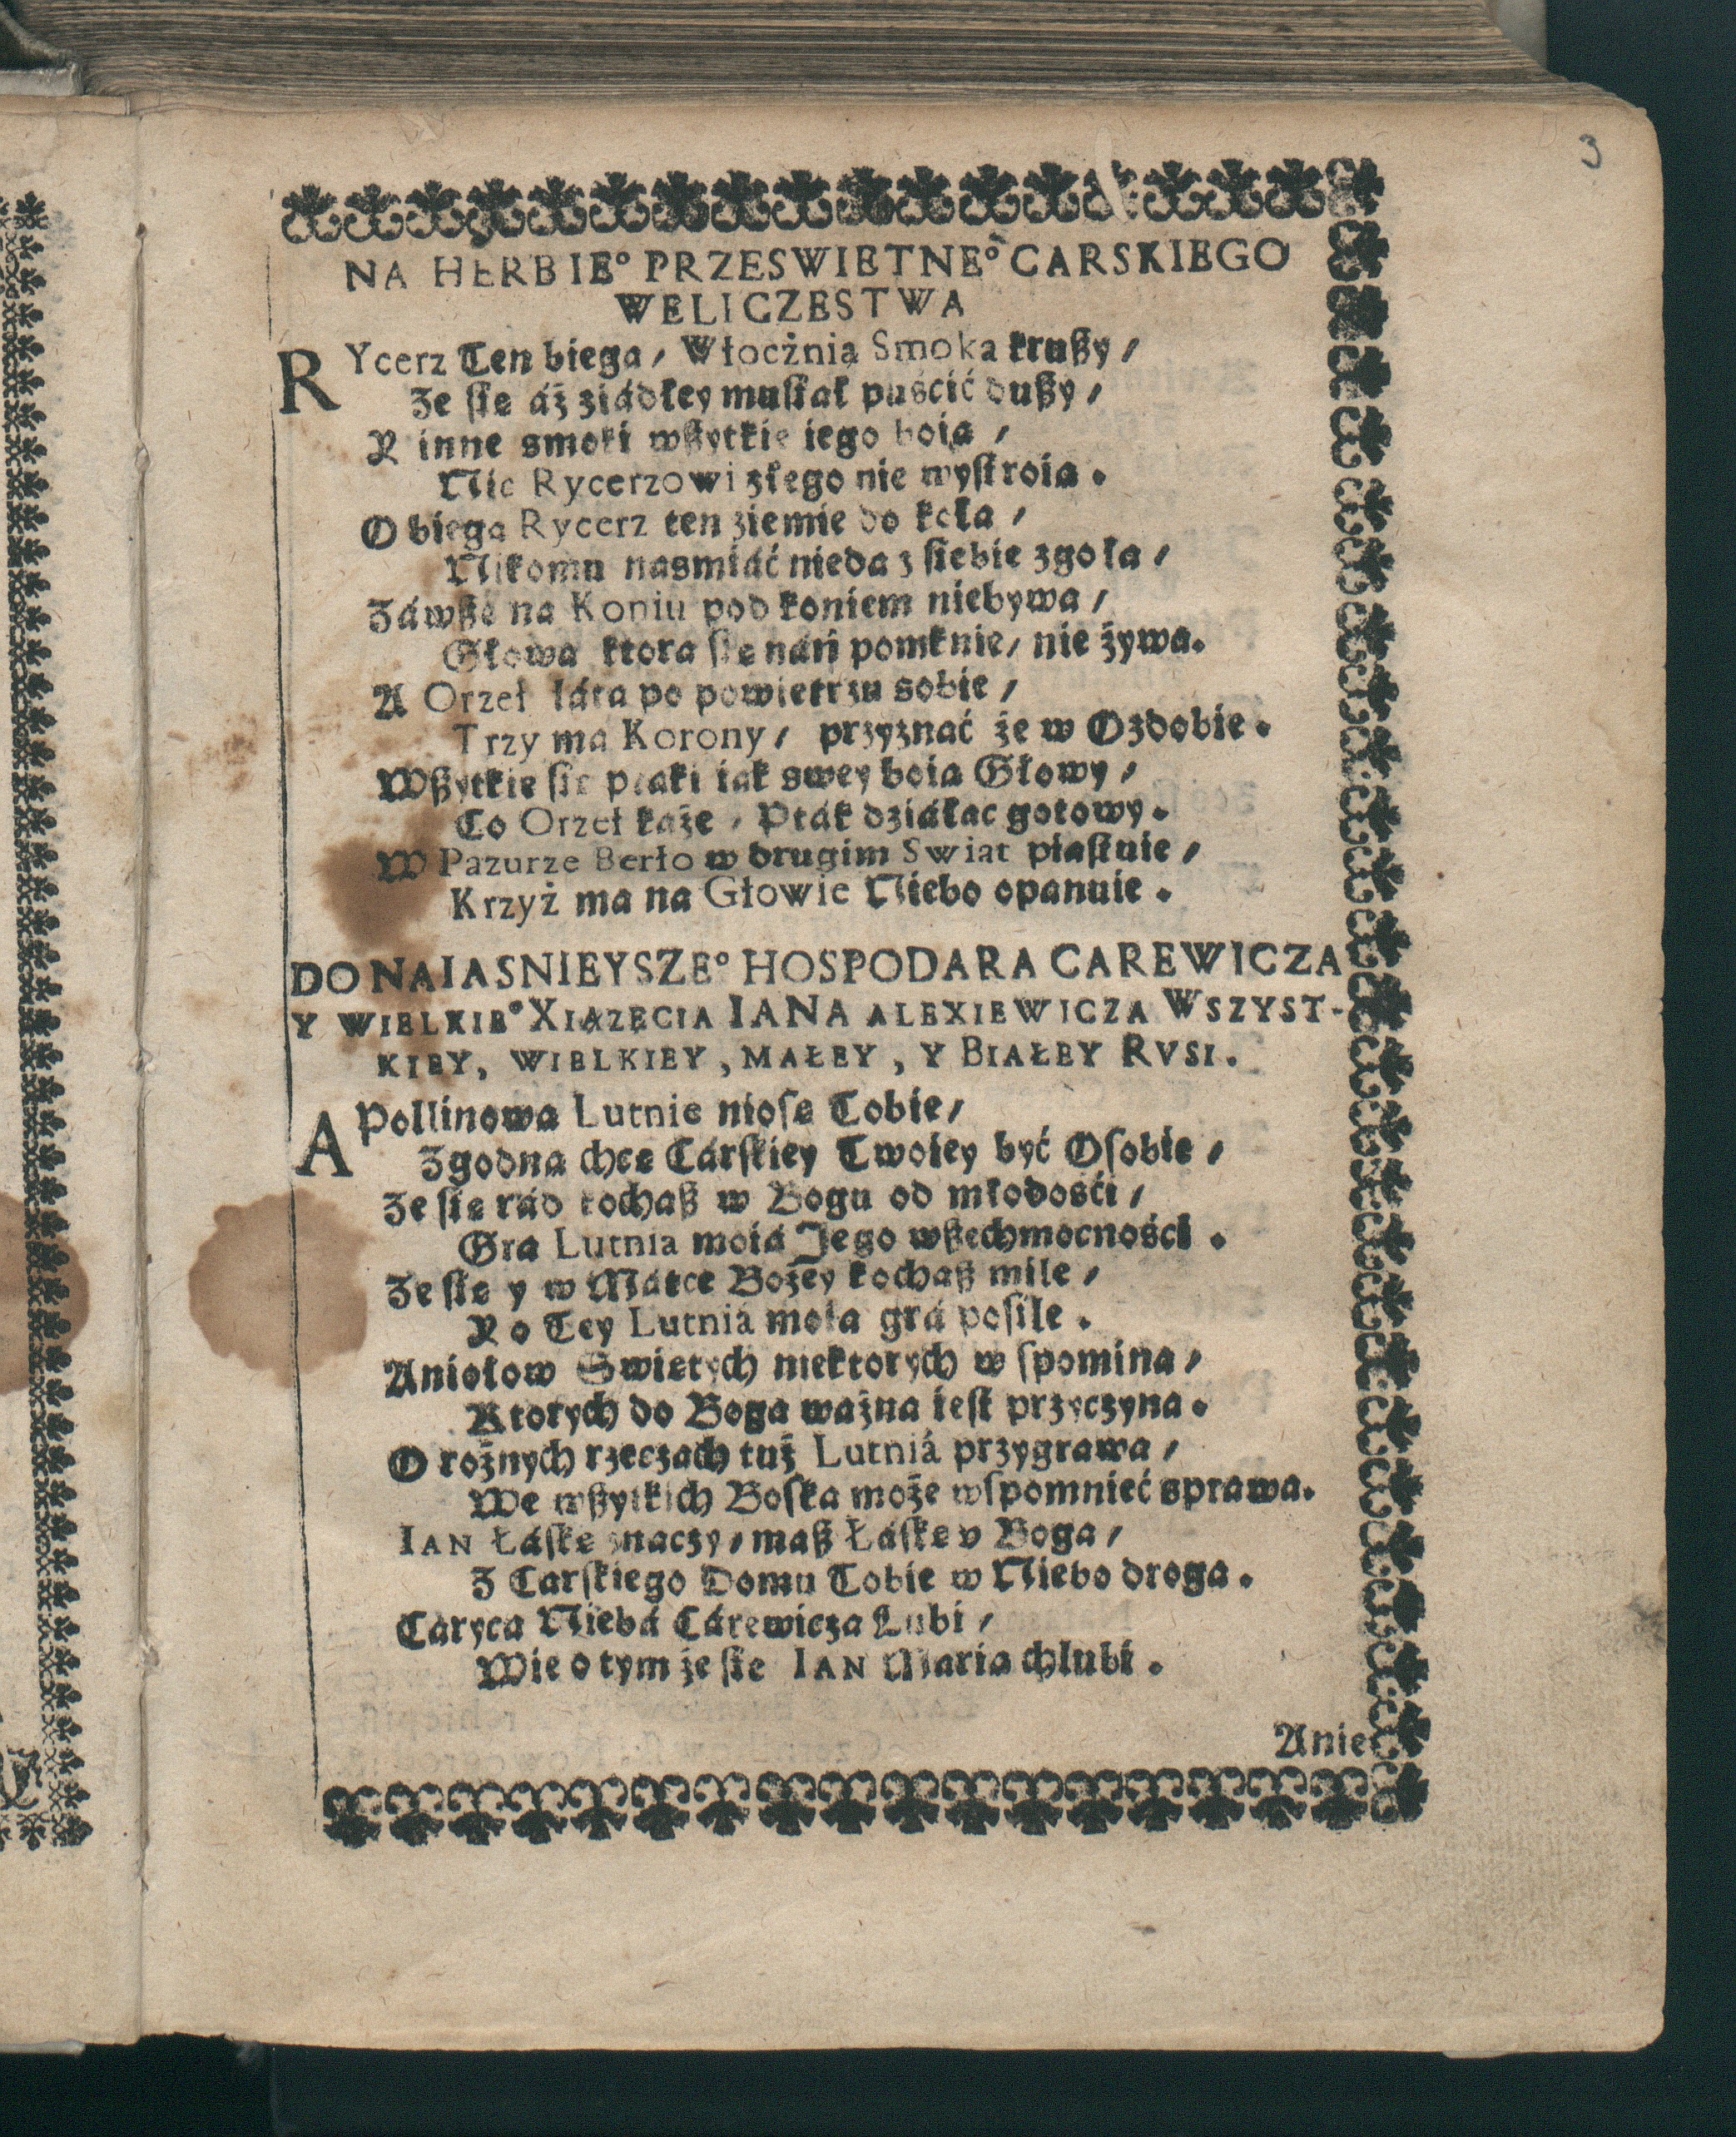 3
NA HERBIE° PRZESWIETNE° CARSKIEGO
WELICZESTWA
RYcerz Ten biega / Włocżnią Smoka krußy /
Ze sie áż ziádłey musiał puśćić dußy /
Y inne smoki wßytkie iego boia /
Nic Rycerzowi złego nie wystroia.
Obiega Rycerz ten ziemie do koła /
Nikomu nasmiáć nieda z siebie zgoła /
Záwße na Koniu pod koniem niebywa /
Głowa ktora sie nań pomknie / nie żywa.
A Orzeł láta po powietrzu sobie /
Trzy ma Korony / przyznać że w Ozdobie.
Wßytkie sie ptaki iak swey boia Głowy /
Co Orzeł każe / Pták dziáłac gotowy.
W Pazurze Berło w drugim Swiat piastuie /
Krzyż ma na Głowie Niebo opanuie.
DO NAIASNIEYSZE° HOSPODARA CAREWICZA
Y WIELKIE° XIĄZĘCIA IANA ALEXIEWICZA WSZYST-
KIEY, WIELKIEY, MAŁEY, Y BIAŁEY RVSI.
APollinowa Lutnie niose Tobie /
Zgodna chce Cárskiey Twoiey być Osobie /
Ze sie rád kochaß w Bogu od młodośći /
Gra Lutnia moiá Jego wßechmocnośći.
Ze sie y w Mátce Bożey kochaß mile /
Y o Tey Lutniá moia grá posile.
Aniołow Swietych niektorych w spomina /
Ktorych do Boga ważna iest przyczyna.
O rożnych rzeczach tuż Lutniá przygrawa /
We wßytkich Boska może wspomnieć sprawa.
IAN Łáske znaczy / maß Łáske v Boga /
Z Carskiego Domu Tobie w Niebo droga.
Caryca Niebá Cárewicza Lubi /
Wie o tym że sie IAN Maria chlubi.
Anie